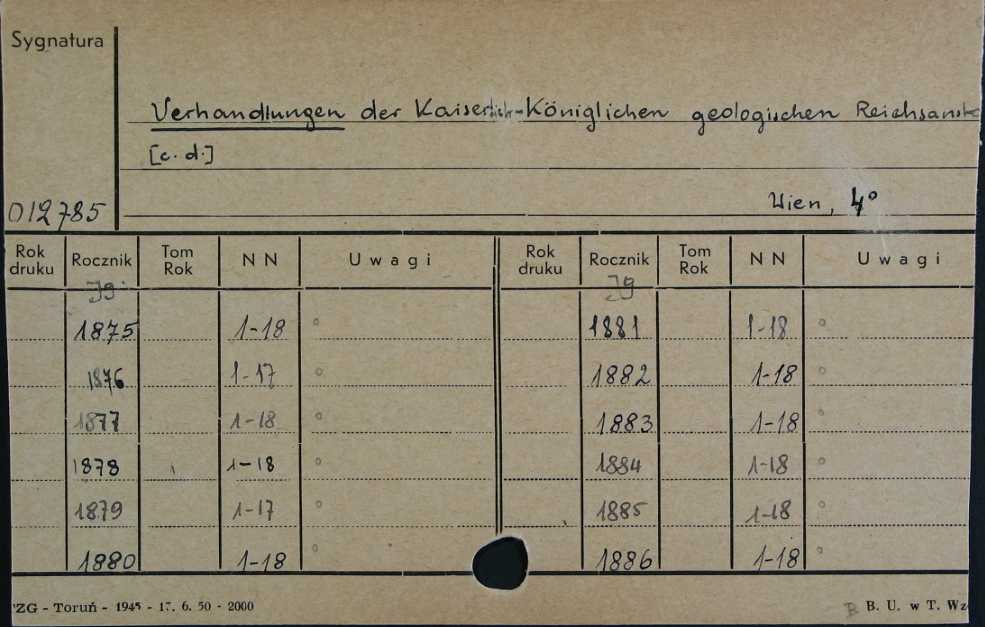 Sygnatura
Verhandlungen der Kaiserlich-Königlichen geologischen Reichsanst
[c. d.]
Wien, 4°
012785
Rok druku Rocznik Tom Rok NN Uwagi Rok druku Rocznik Tom Rok NN Uwagi
Jg. Jg
1875 1-18 ° 1881 1-18 °
1876 1-17 ° 1882 1-18 °
1877 1-18 ° 1883 1-18 °
1878 1-18 ° 1884 1-18 °
1879 1-17 ° 1885 1-18 °
1880 1-18 ° 1886 1-18 °
ZG - Toruń - 1945 - 17. 6. 50 - 2000 B B. U. w T. Wz